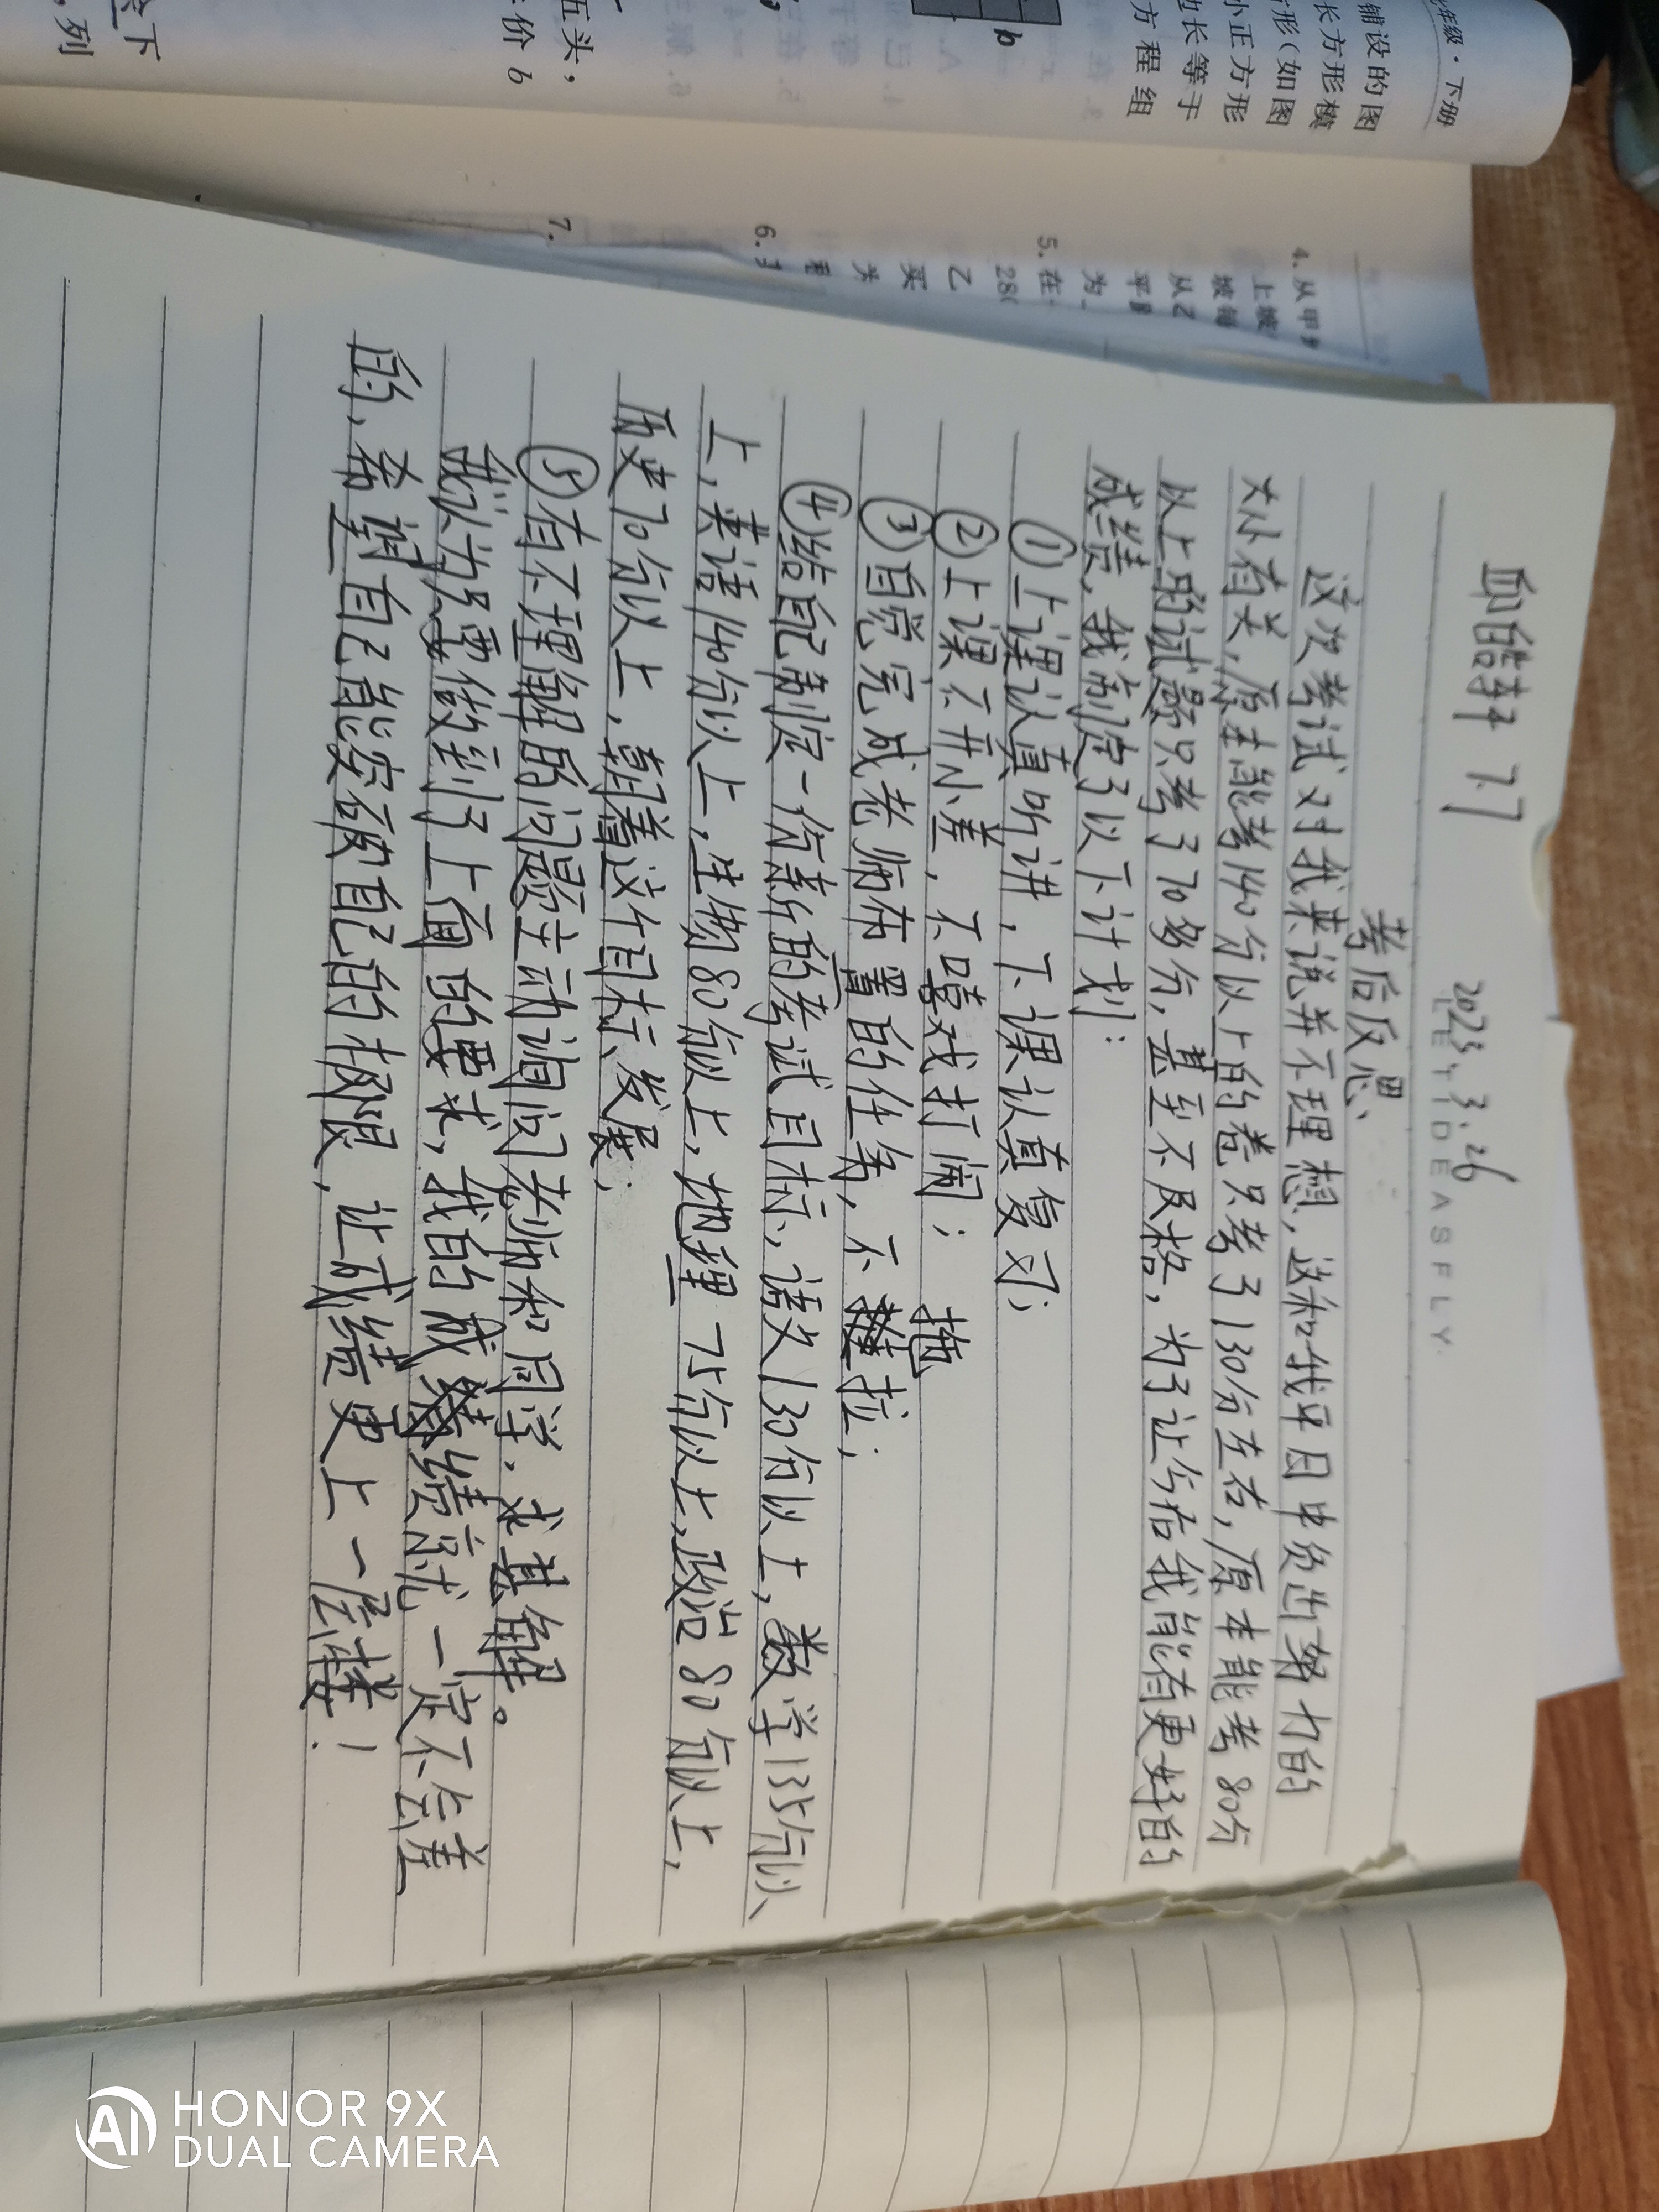 皓轩 7.7
2023.3.26
LEYIDEASFLY
考后反思
这次考试对我来说并不理想，这和我平日中负出努力的
大小有关，原本能考140分以上的卷只考了130分左右，原本能考80分
以上的试题只考了70多分，甚至不及格，为了让今后我能有更好的
成绩，我制定了以下计划：
①上课认真听讲，下课认真复习；
②上课不开小差，不嘻戏打闹；
③自觉完成老师布置的任务，不拖拉；
④给自己制定一份新的考试目标，语文130分以上，数学135分以
上，英语140分以上，生物80分以上，地理75分以上，政治80分以上，
历史70分以上，朝着这个目标发展；
⑤有不理解的问题主动询问老师和同学，求其解。
我认为只要做到了上面的要求，我的成绩就一定不会差
的，希望自己能突破自己的极限，让成绩更上一层楼！
年级·下册
铺设的图
长方形模
形(如图
小正方形
边长等于
方程组
b
五头，
价 b
下
列
4.从甲
上坡
坡每
从乙
平
为
5.在
28
乙
买
关
6.
7.
HONOR 9X
DUAL CAMERA
AI